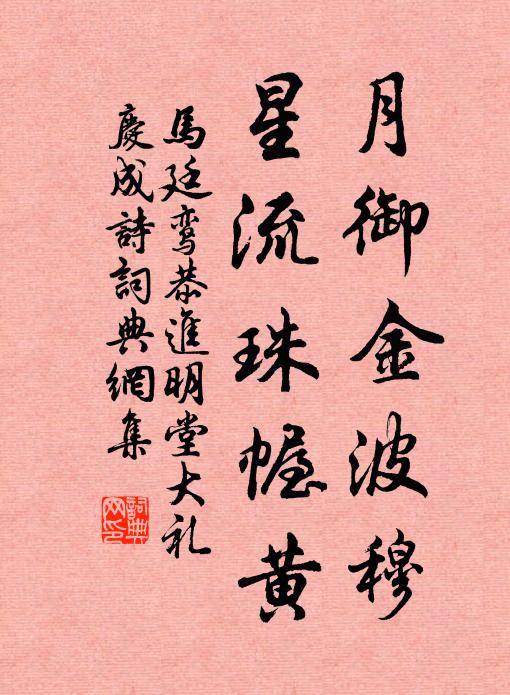 月御金波穆
星流珠幄黄
馬廷鸾恭進明堂大礼
慶成詩詞典網集
詞典网印